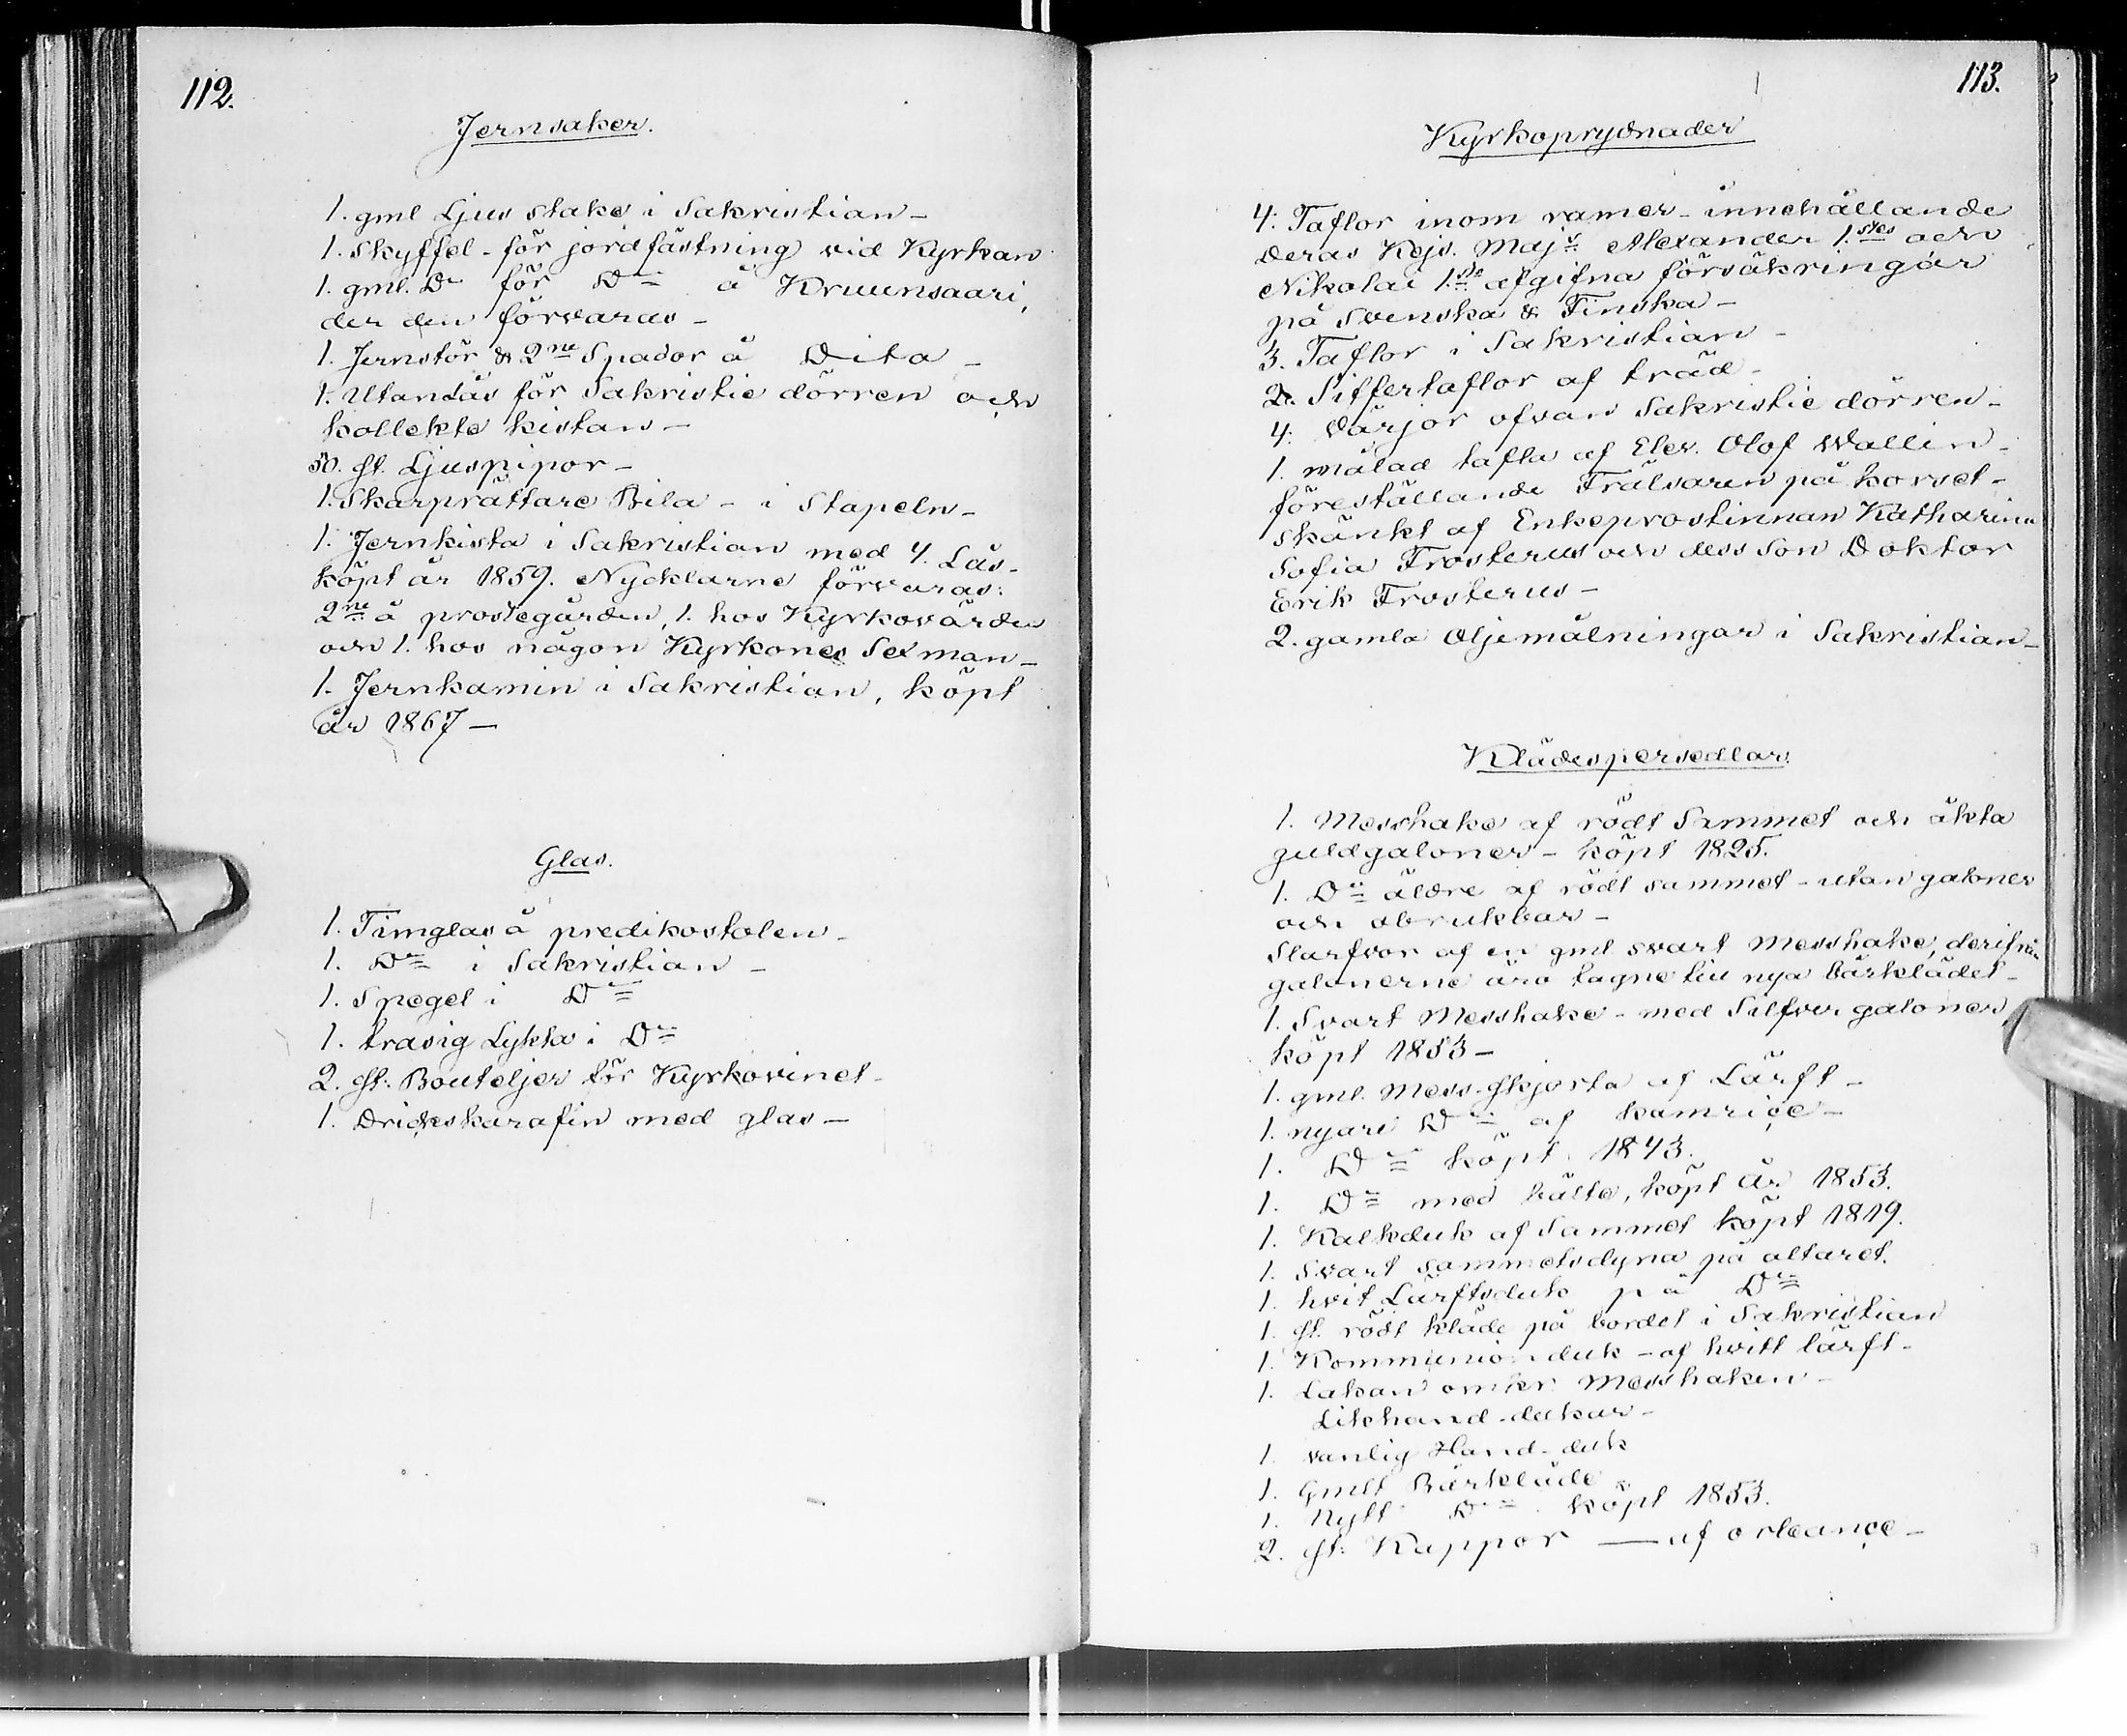 112.
Jernsaker.
1. gml Ljus stake i Sakristian –
1. Skyffel - för jordfästning vid Kyrkan
1. gml. Do för Do å Kruunsaari,
der den förvaras –
1. Jernstör & 2ne Spador å Dito –
1. Utanlås för Sakristie dörren och
kollekte kistan –
50. st. Ljuspipor –
1. Skarprättare Bila – i Stapeln –
1. Jernkista i Sakristian med 4. Lås –
köpt år 1859. Nycklarne förvaras:
2ne å prostegården, 1. hos Kyrkovärden
och 1. hos någon Kyrkones Sexman –
1. Jernkamin i Sakristian, köpt
år 1867 –
Glas.
1. Timglas å predikostolen –
1. Do i Sakristian –
1. Spegel i Do
1. trasig Lykta i Do
2. st. Bouteljer för Kyrkovinet –
1. Drickskarafin med glas –
113.
Kyrkoprydnader
4. Taflor inom ramer – innehållande
deras Kejs. Majs Alexander 1.stes och
Nikolai 1.ste afgifna försäkringar
på Svenska & Finska –
3. Taflor i Sakristian –
2. Siffertaflor af träd –
4. Värjor ofvan Sakristie dörren –
1. målad tafla af Elev. Olof Wallin –
föreställande Frälsaren på korset –
skänkt af Enkeprostinnan Katharina
Sofia Frosterus och dess Son Doktor
Erik Frosterus –
2. gamla Oljemålningar i Sakristian –
Klädespersedlar.
1. Messhake af rödt Sammet och äkta
guldgaloner – köpt 1825.
1. Do äldre af rödt sammet – utan galoner
och obrukbar –
Slarfvor af en gml svart Messhake, derifrån
galonerne äro tagne till nya bårklädet –
1. Svart Messhake – med Silfver galoner,
köpt 1853 –
1. gml. Mess-skjorta af Lärft –
1. nyare Do af kamriçe –
1. Do köpt 1843.
1. Do med bälte, köpt år 1853.
1. Kalkduk af Sammet köpt 1819.
1. Svart sammetsdyna på altaret.
1. hvit Lärftsduk på Do
1. st. rödt kläde på bordet i Sakristian
1. Kommunionduk – af hvitt lärft –
1. Lakan omkr Messhaken –
Likhand-dukar –
1. vanlig Hand-duk
1. Gmlt Bårkläde
1. Nytt Do köpt 1853.
2. st. Kappor — af orleançe –